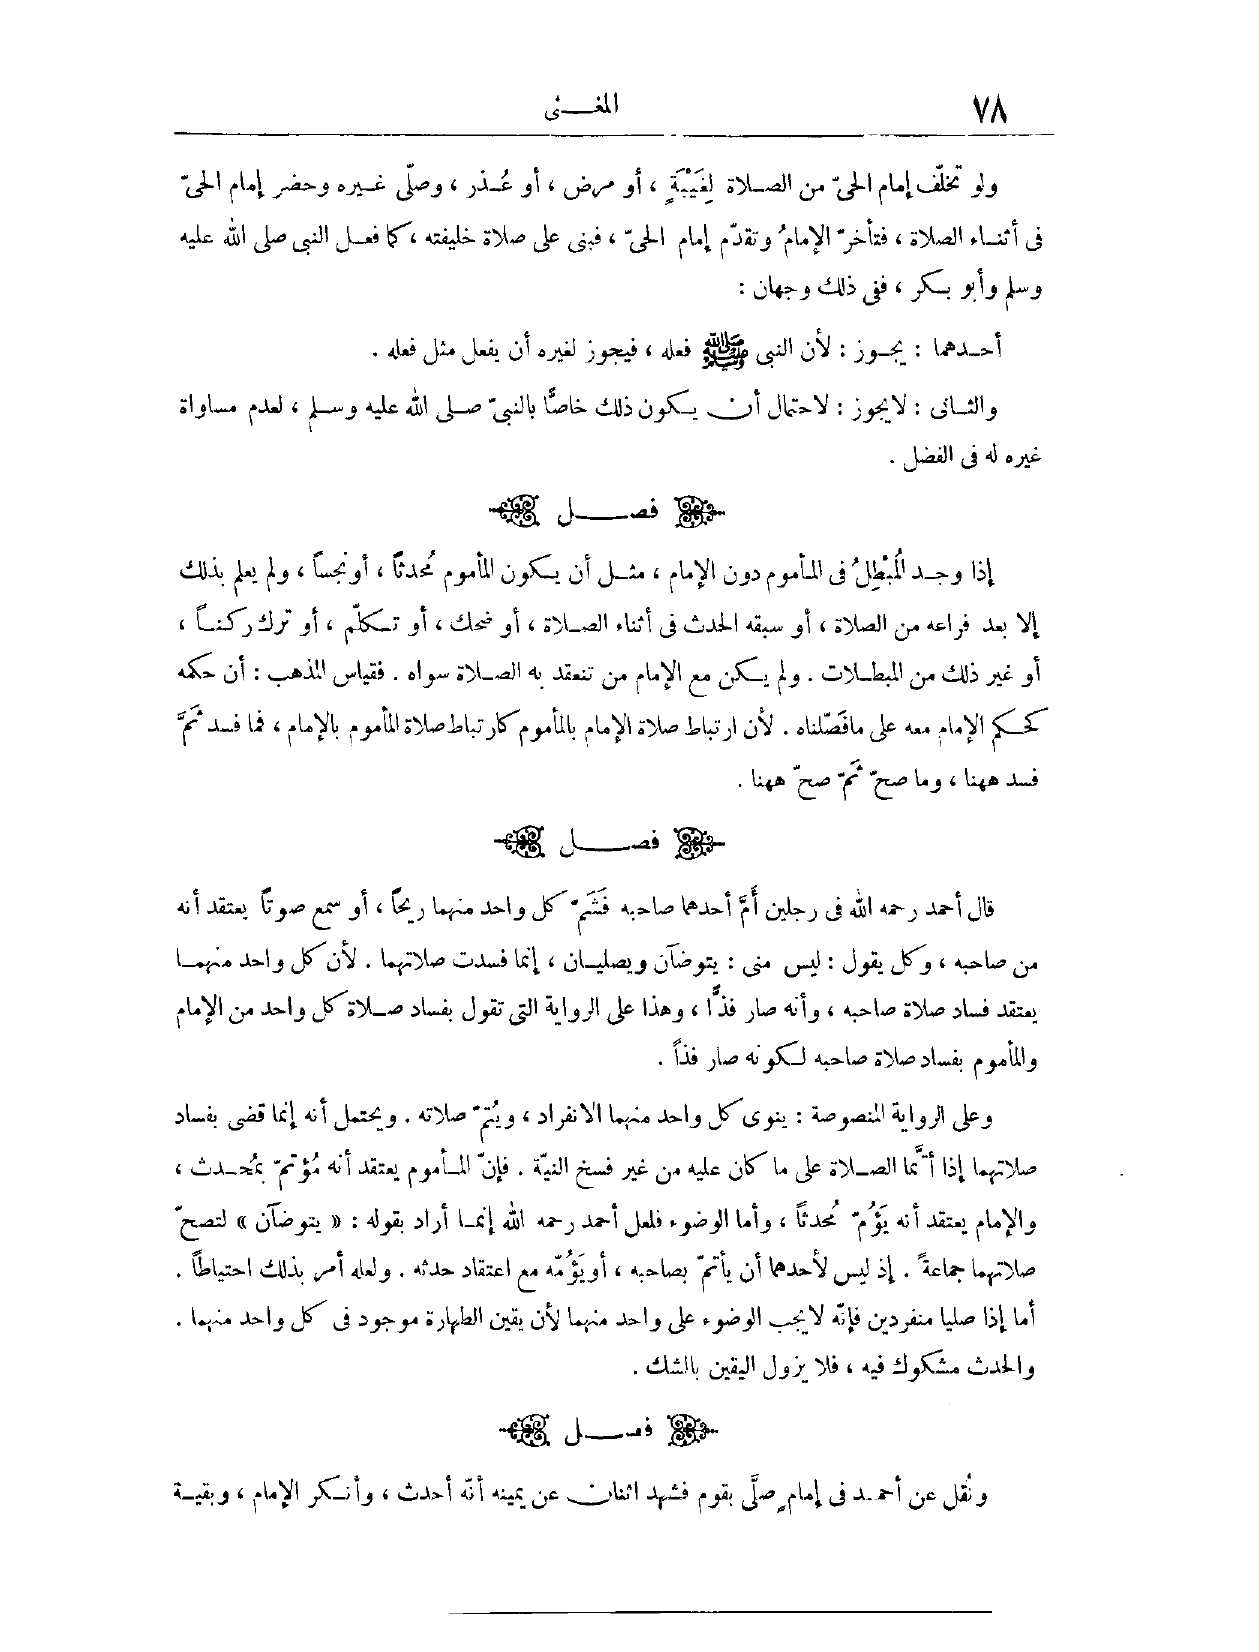 ٧٨
المغنى
ولو تخلّف إمام الحىّ من الصلاة لِغَيْبَةٍ ، أو مرض ، أو عُذر ، وصلّى غيره وحضر إمام الحىّ
فى أثناء الصلاة ، فتأخرّ الإمامُ وتقدّم إمام الحىّ ، فبنى على صلاة خليفته ، كما فعل النبى صلى الله عليه
وسلم وأبو بكر ، ففى ذلك وجهان :
أحدهما : يجوز : لأن النبى ﷺ فعله ، فيجوز لغيره أن يفعل مثل فعله .
والثانى : لايجوز : لاحتمال أن يكون ذلك خاصًّا بالنبىّ صلى الله عليه وسلم ، لعدم مساواة
غيره له فى الفضل .
فصل
إذا وجد الُمبْطِلُ فى المأموم دون الإمام ، مثل أن يكون المأموم مُحدثاً ، أونجساً ، ولم يعلم بذلك
إلا بعد فراغه من الصلاة ، أو سبقه الحدث فى أثناء الصلاة ، أو ضحك ، أو تكلّم ، أو ترك ركناً ،
أو غير ذلك من المبطلات . ولم يكن مع الإمام من تنعقد به الصلاة سواه . فقياس المذهب : أن حكمه
كحكم الإمام معه على مافَصّلناه . لأن ارتباط صلاة الإمام بالمأموم كارتباط صلاة المأموم بالإمام ، فما فسد ثَمَّ
فسد ههنا ، وما صحّ ثَمّ صحّ ههنا .
فصل
قال أحمد رحمه الله فى رجلين أَمَّ أحدهما صاحبه فَشَمّ كل واحد منهما ريحاً ، أو سمع صوتاً يعتقد أنه
من صاحبه ، وكل يقول : ليس منى : يتوضآن ويصليان ، إنما فسدت صلاتهما . لأن كل واحد منهما
يعتقد فساد صلاة صاحبه ، وأنه صار فذًّا ، وهذا على الرواية التى تقول بفساد صلاة كل واحد من الإمام
والمأموم بفساد صلاة صاحبه لكونه صار فذاً .
وعلى الرواية المنصوصة : ينوى كل واحد منهما الانفراد ، ويُتمّ صلاته . ويحتمل أنه إنما قضى بفساد
صلاتهما إذا أتمَّا الصلاة على ما كان عليه من غير فسخ النيّة . فإنّ المأموم يعتقد أنه مُؤتمّ بمُحدث ،
والإمام يعتقد أنه يَؤُمّ مُحدثاً ، وأما الوضوء فلعل أحمد رحمه الله إنما أراد بقوله : « يتوضآن » لتصحّ
صلاتهما جماعةً . إذ ليس لأحدهما أن يأتمّ بصاحبه ، أويَؤُمّه مع اعتقاد حدثه . ولعله أمر بذلك احتياطاً .
أما إذا صليا منفردين فإنّه لايجب الوضوء على واحد منهما لأن يقين الطهارة موجود فى كل واحد منهما .
والحدث مشكوك فيه ، فلا يزول اليقين بالشك .
فصل
ونُقل عن أحمد فى إمامٍ صلَّى بقوم فشهد اثنان عن يمينه أنّه أحدث ، وأنكر الإمام ، وبقية